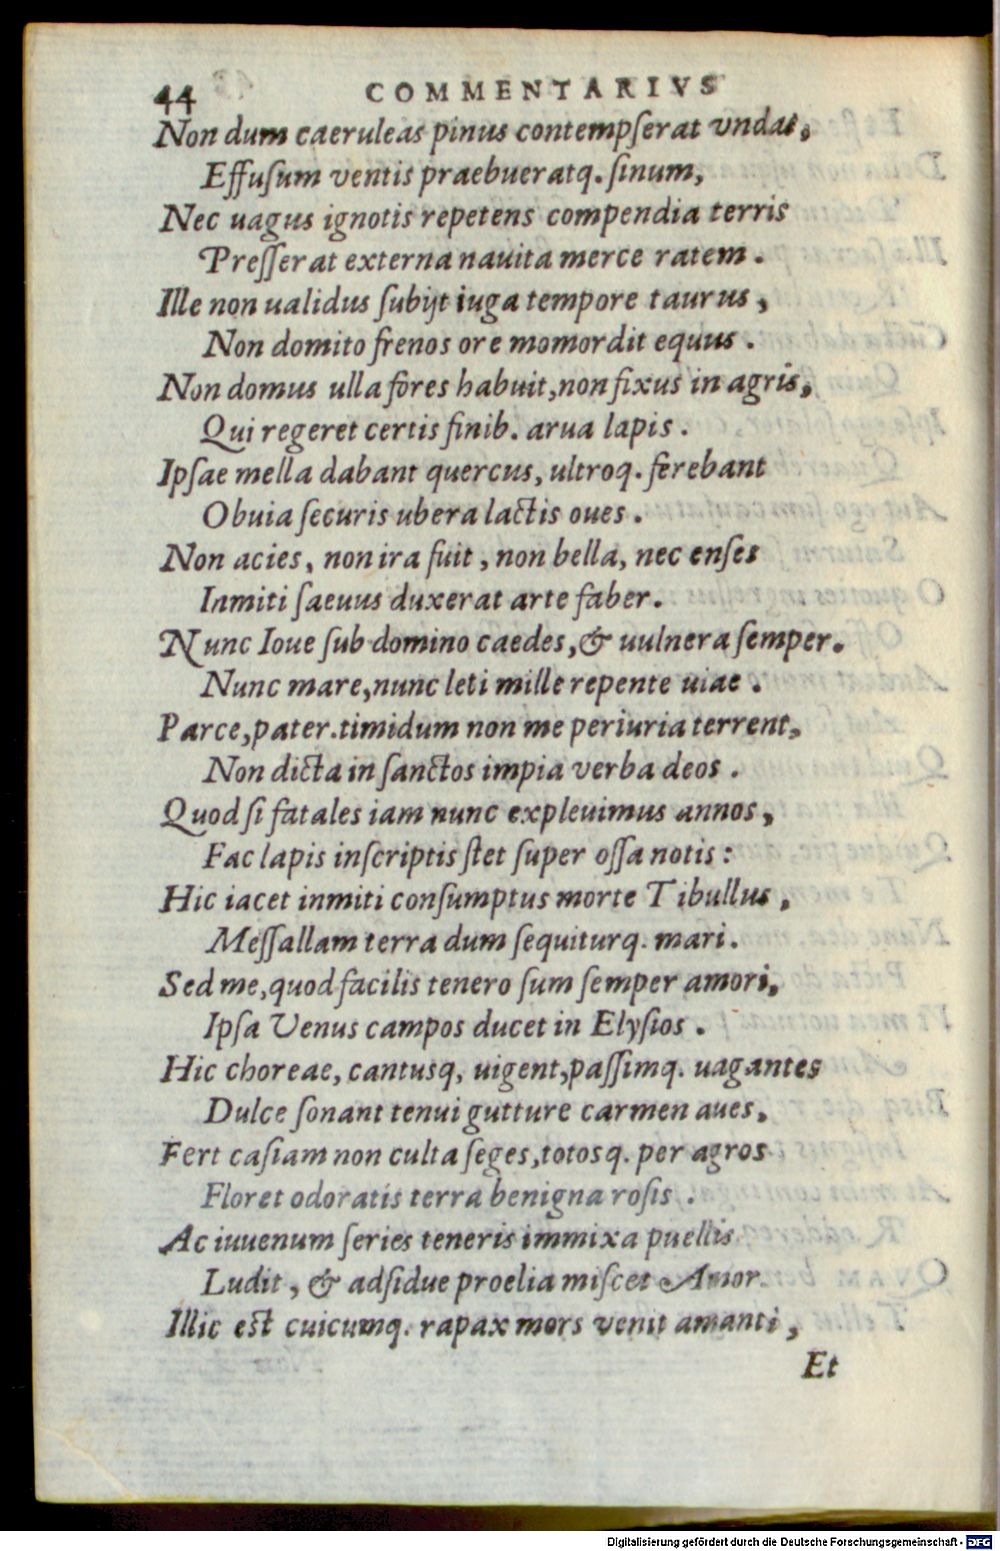 44 COMMENTARIVS
Non dum caeruleas pinus contempſerat vndas,
Effuſum ventis praebueratq. ſinum,
Nec uagus ignotis repetens compendia terris
Preſſerat externa nauita merce ratem.
Ille non ualidus ſubijt iuga tempore taurus,
Non domito frenos ore momordit equus.
Non domus ulla fores habuit, non fixus in agris,
Qui regeret certis finib. arua lapis.
Ipſae mella dabant quercus, ultroq. ferebant
Obuia ſecuris ubera lactis oues.
Non acies, non ira fuit, non bella, nec enſes
Inmiti ſaeuus duxerat arte faber.
Nunc Ioue ſub domino caedes, & uulnera ſemper.
Nunc mare, nunc leti mille repente uiae.
Parce, pater. timidum non me periuria terrent,
Non dicta in ſanctos impia verba deos.
Quod ſi fatales iam nunc expleuimus annos,
Fac lapis inſcriptis ſtet ſuper oſſa notis:
Hic iacet inmiti conſumptus morte Tibullus,
Meſſallam terra dum ſequiturq. mari.
Sed me, quod facilis tenero ſum ſemper amori,
Ipſa Venus campos ducet in Elyſios.
Hic choreae, cantusq, uigent, paſſimq. uagantes
Dulce ſonant tenui gutture carmen aues,
Fert caſiam non culta ſeges, totosq. per agros
Floret odoratis terra benigna roſis.
Ac iuuenum ſeries teneris immixa puellis
Ludit, & adſidue proelia miſcet Amor.
Illic est cuicumq. rapax mors venit amanti,
Et
Digitalisierung gefördert durch die Deutsche Forschungsgemeinschaft - DFG